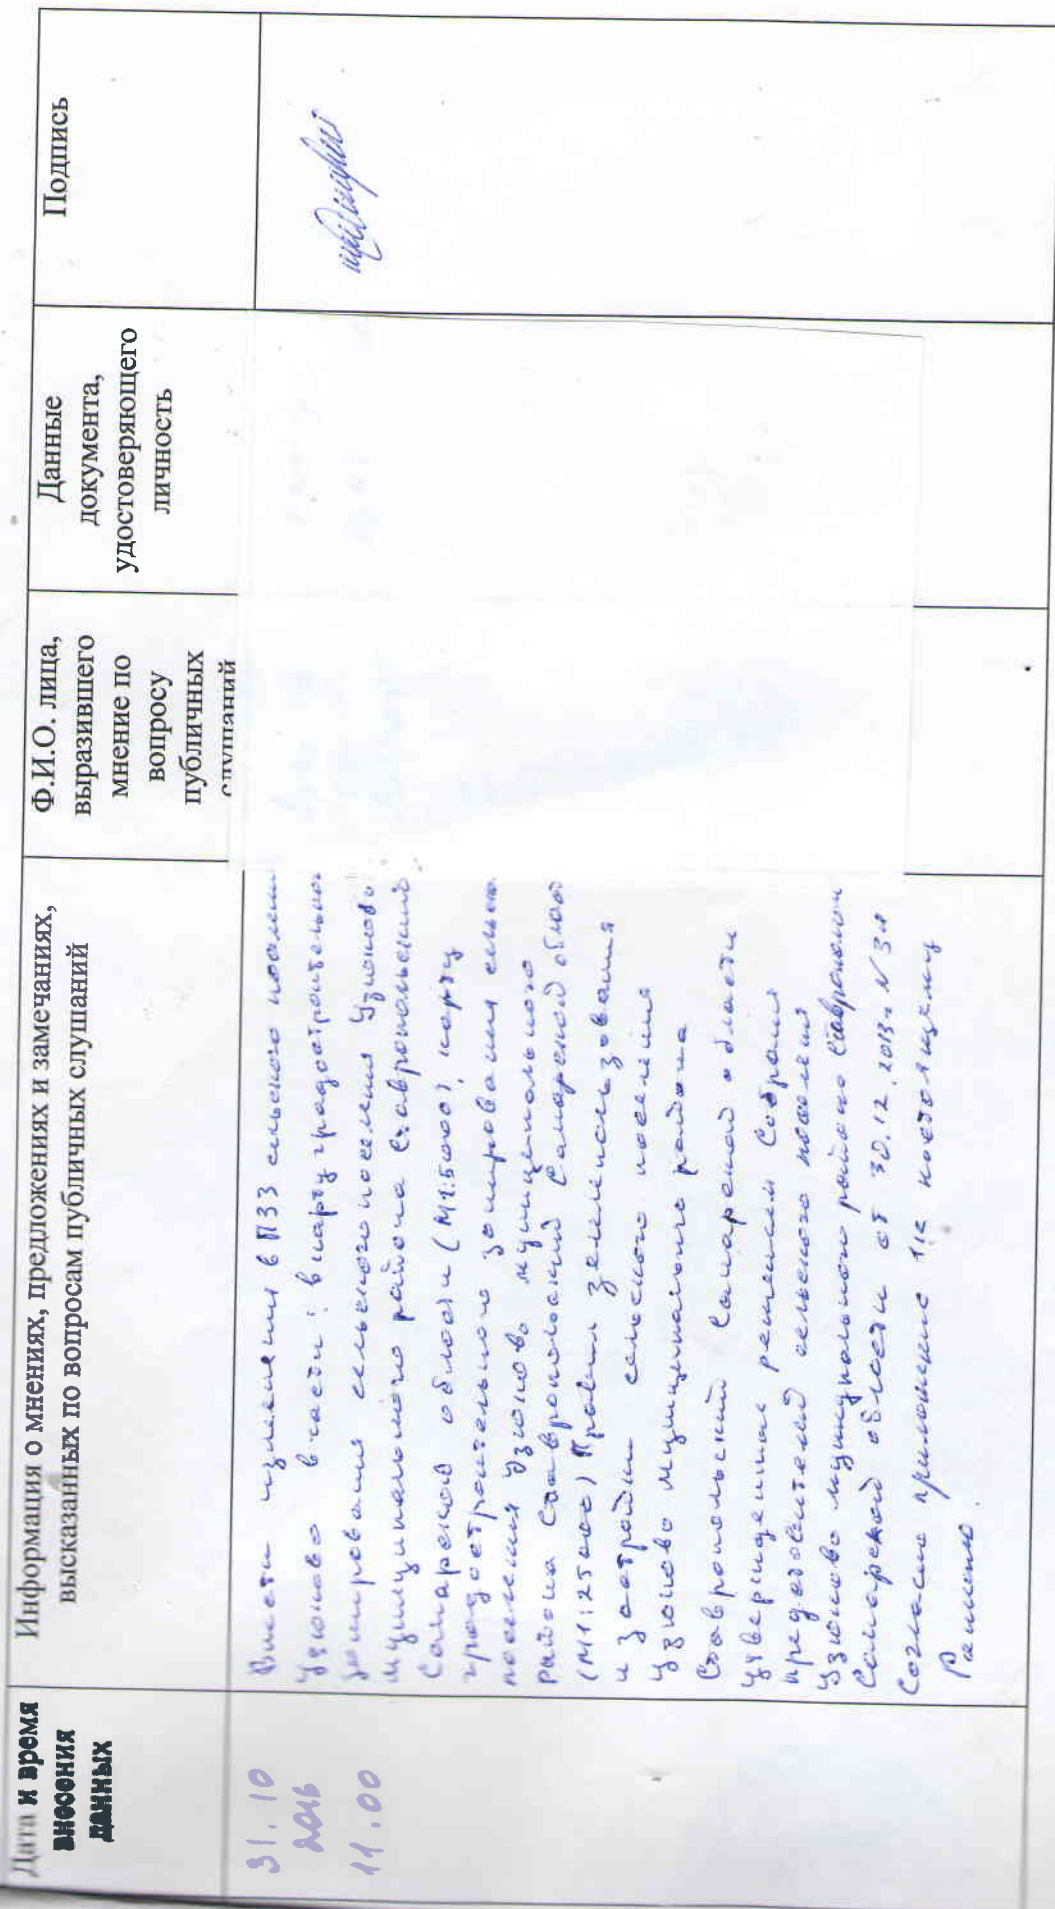 Дата и время
внесения
данных
Информация о мнениях, предложениях и замечаниях,
высказанных по вопросам публичных слушаний
Ф.И.О. лица,
выразившего
мнение по
вопросу
публичных
слушаний
Данные
документа,
удостоверяющего
личность
Подпись
31.10
2016
11.00
Внести изменения в ПЗЗ сельского поселения
Узюково в части: в карту градостроительного
зонирования сельского поселения Узюково
муниципального района Ставропольский
Самарской области (М1:5000), карту
градостроительного зонирования сельского
поселения Узюково муниципального
района Ставропольский Самарской области
(М1:25000) Правил землепользования
и застройки сельского поселения
Узюково муниципального района
Ставропольский Самарской области
утвержденные решением Собрания
представителей сельского поселения
Узюково муниципального района Ставропольский
Самарской области от 30.12.2013г N
Согласно приложение к настоящему
Решению